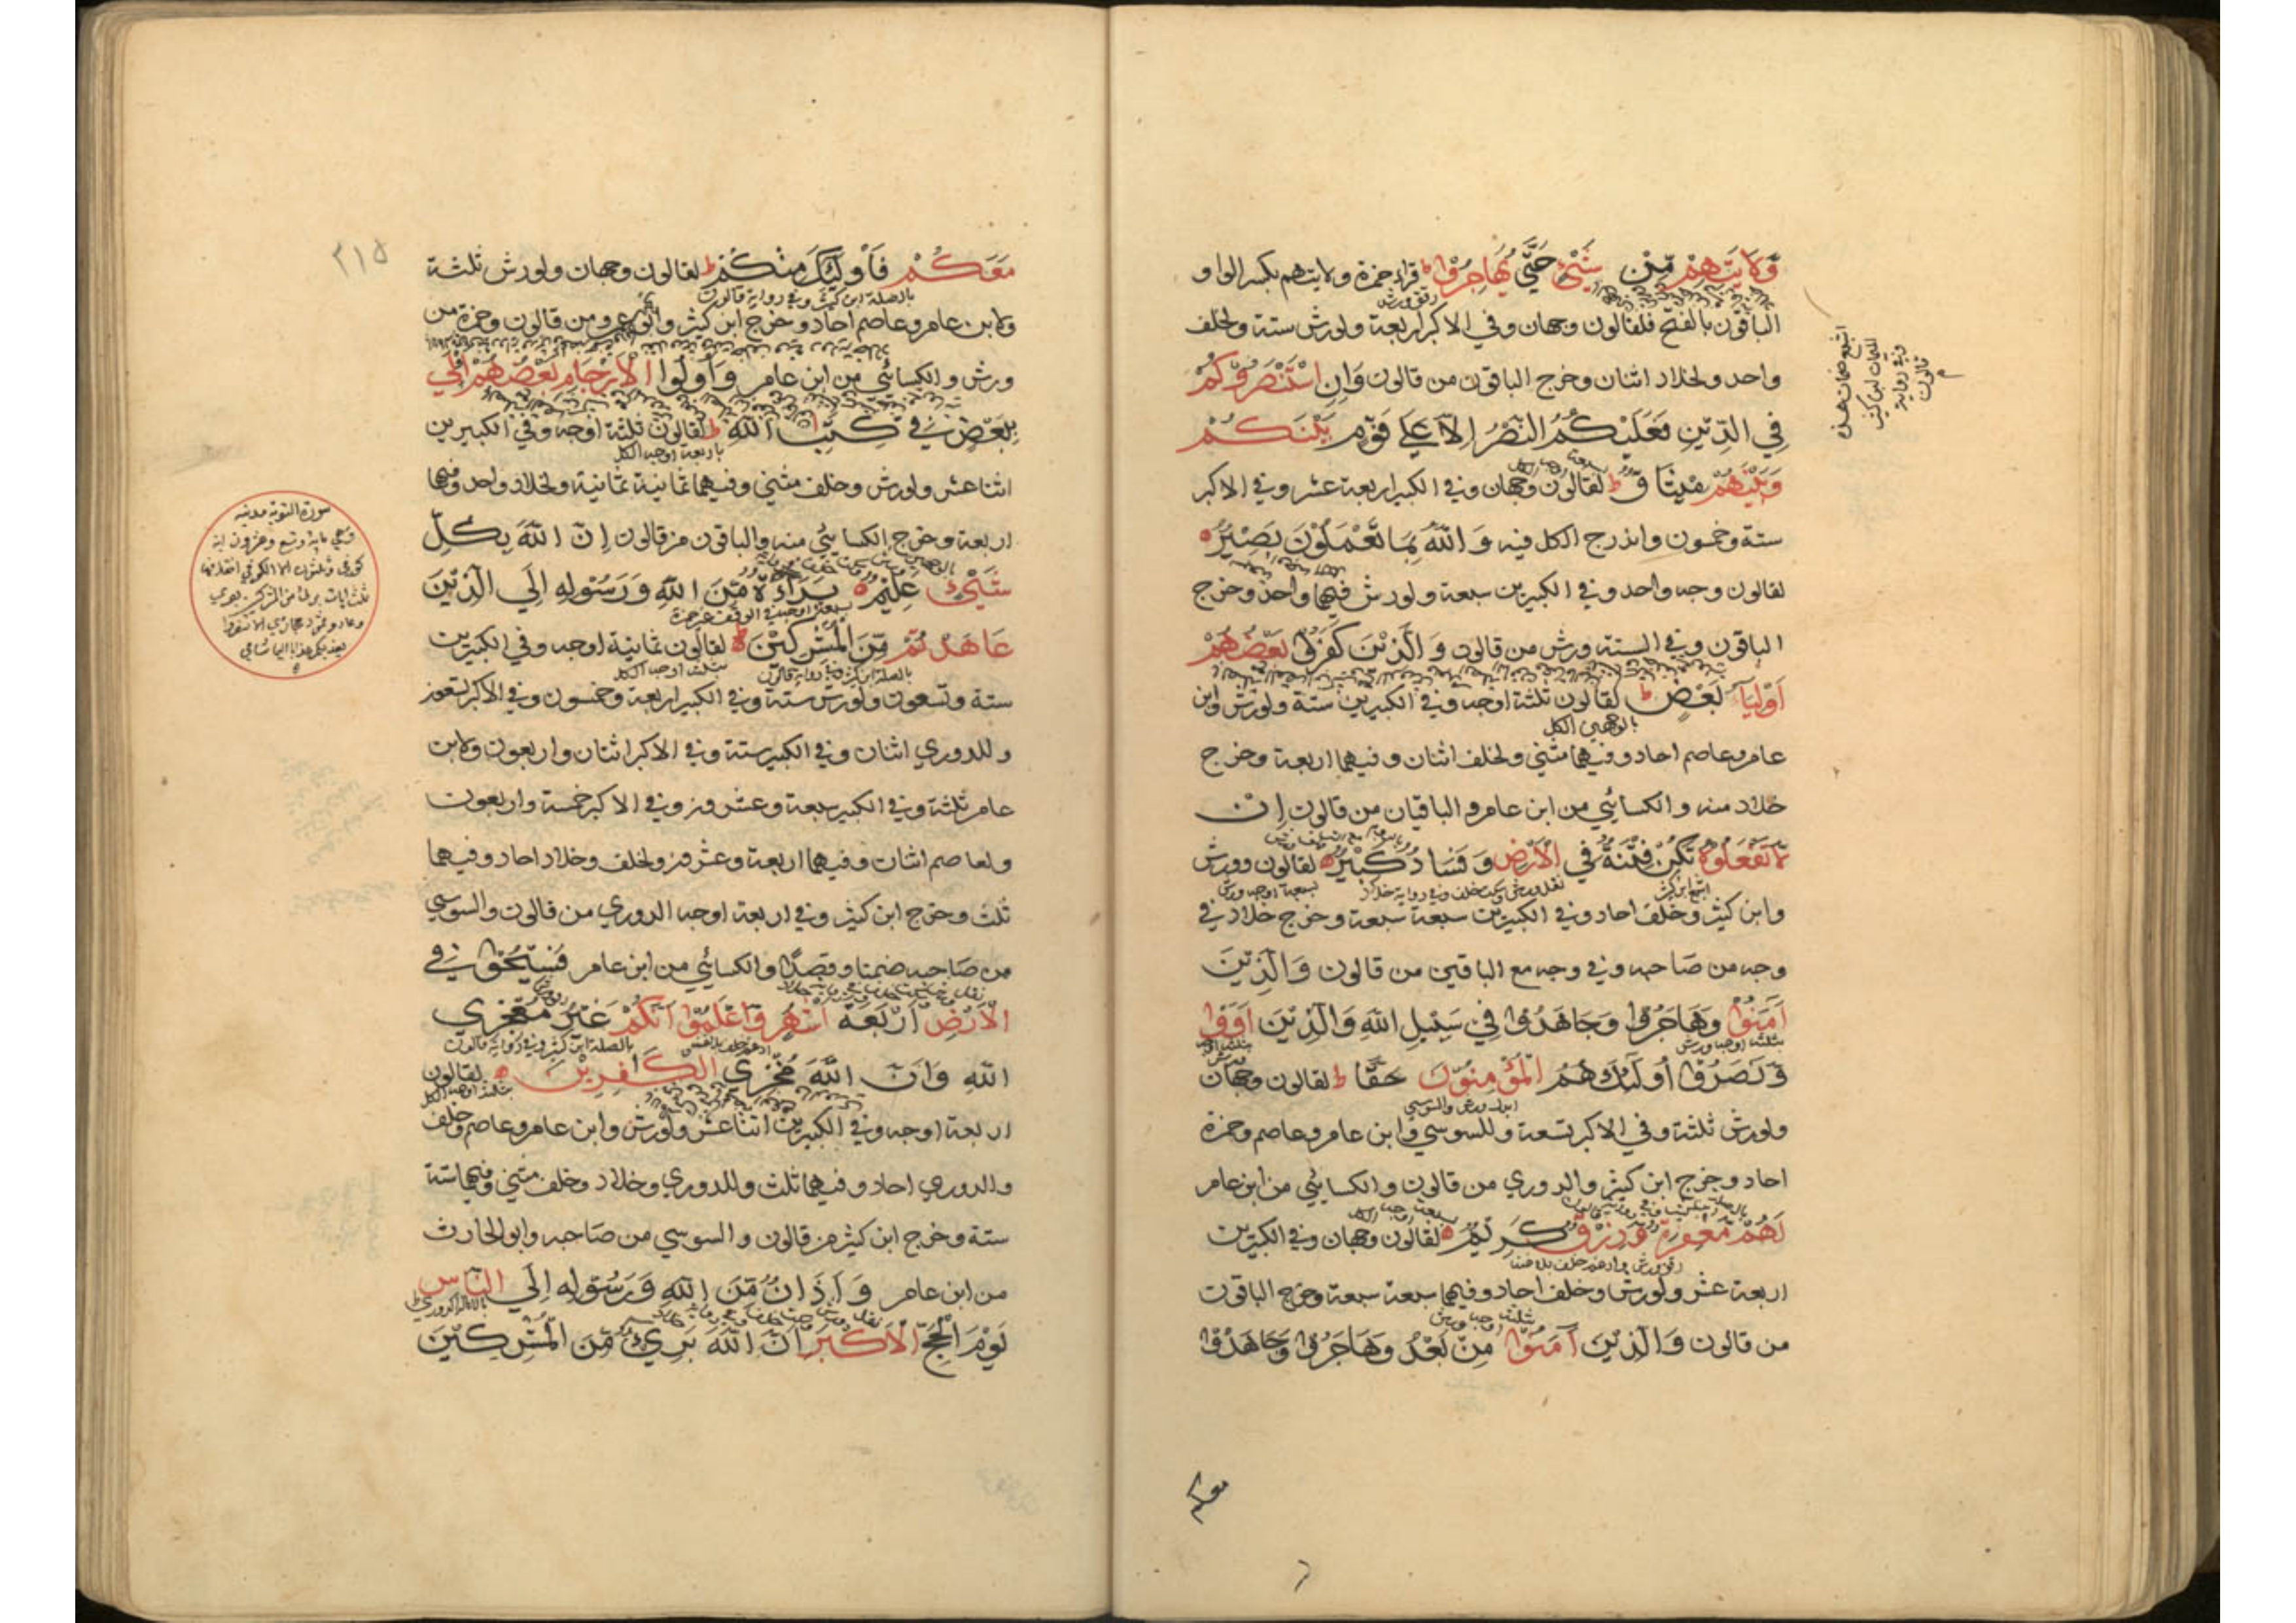 وَلَايَتِهِمْ مِّنْ شَيْئٍ حَتَّي يُهَاجِرُوْا ط قراء حمزة ولايتهم بكسر الواو
الباقون بالفتح فلقالون وجهان وفي الاكبر اربعة ولورش ستة ولخلف
واحد ولخلاد اثنان وخرج الباقون من قالون وَاِنِ اسْتَنْصَرُوْكُمْ
فِي الدِّيْنِ فَعَلَيْكُمُ النَّصْرُ اِلَّا عَلٰي قَوْمٍ بَيْنَكُمْ
وَبَيْنَهُمْ مِيْثَاقٌ ط لقالون وجهان وفي الكبير اربعة عشر وفي الاكبر
ستة وخمسون واندرج الكل فيه وَ اللّٰهُ بِمَا تَعْمَلُوْنَ بَصِيْرٌ ه
لقالون وجه واحد وفي الكبيرين سبعة ولورش فيهما واحد وخرج
الباقون وفي الستة ورش من قالون وَ الَّذِيْنَ كَفَرُوْا بَعْضُهُمْ
اَوْلِيَآءُ بَعْضٍ ط لقالون ثلثة اوجه وفي الكبيرين ستة ولورش وابن
بالوجهين الكل
عامر وعاصم احاد وفيهما مثني ولخلف اثنان وفيهما اربعة وخرج
خلاد منه والكسائي من ابن عامر والباقيان من قالون اِنْ
لَّا تَفْعَلُوْهُ تَكُنْ فِتْنَةٌ فِي الْاَرْضِ وَ فَسَادٌ كَبِيْرٌ ه لقالون وورش
وابن كثير وخلف احاد وفي الكبيرين سبعة سبعة وخرج خلاد في
وجه من صاحبه وفي وجه مع الباقين من قالون وَالَّذِيْنَ
اٰمَنُوْا وَهَاجَرُوْا وَجَاهَدُوْا فِي سَبِيْلِ اللّٰهِ وَالَّذِيْنَ اٰوَوْا
بثلثة اوجه ورش
وَّنَصَرُوْا اُولٰٓئِكَ هُمُ الْمُؤْمِنُوْنَ حَقًّا ط لقالون وجهان
ابدل ورش والسوسي
ولورش ثلثة وفي الاكبر تسعة وللسوسي وابن عامر وعاصم وحمزة
احاد وخرج ابن كثير والدوري من قالون والكسائي من ابن عامر
لَهُمْ مَّغْفِرَةٌ وَّرِزْقٌ كَرِيْمٌ ه لقالون وجهان وفي الكبيرين
رقق ورش وادغم خلف بلا غنة
اربعة عشر ولورش وخلف احاد وفيهما سبعة سبعة وخرج الباقون
بثلثة اوجه ورش
من قالون وَالَّذِيْنَ اٰمَنُوْا مِنْ بَعْدُ وَهَاجَرُوْا وَجَاهَدُوْا
معكم
اشبع ضمات هذه
الميمات ابن كثير
وفي رواية
قالون
٢١٥
مَعَكُمْ فَاُولٰٓئِكَ مِنْكُمْ ط لقالون وجهان ولورش ثلثة
بالصلة ابن كثير وفي رواية قالون
ولابن عامر وعاصم احاد وخرج ابن كثير وابو عمرو من قالون وحمزة من
ورش والكسائي من ابن عامر وَاُولُوا الْاَرْحَامِ بَعْضُهُمْ اَوْلٰي
بِبَعْضٍ فِي كِتٰبِ اللّٰهِ ط لقالون ثلثة اوجه وفي الكبيرين
باربعة اوجه الكل
اثنا عشر ولورش وخلف مثني وفيهما ثمانية ثمانية ولخلاد واحد وفيهما
اربعة وخرج الكسائي منه والباقون من قالون اِنَّ اللّٰهَ بِكُلِّ
شَيْئٍ عَلِيْمٌ ه بَرَآءَةٌ مِّنَ اللّٰهِ وَرَسُوْلِهٖ اِلَي الَّذِيْنَ
عَاهَدْتُمْ مِّنَ الْمُشْرِكِيْنَ ه لقالون ثمانية اوجه وفي الكبيرين
بالصلة ابن كثير وفي رواية قالون
بثلثة اوجه الكل
ستة وتسعون ولورش ستة وفي الكبير اربعة وخمسون وفي الاكبر تسعون
وللدوري اثنان وفي الكبير ستة وفي الاكبر اثنان واربعون ولابن
عامر ثلثة وفي الكبير سبعة وعشرون وفي الاكبر خمسة واربعون
ولعاصم اثنان وفيهما اربعة وعشرون ولخلف وخلاد احاد وفيهما
ثلث وخرج ابن كثير وفي اربعة اوجه الدوري من قالون والسوسي
من صاحبه ضمنا وقصدا والكسائي من ابن عامر فَسِيْحُوْا فِي
الْاَرْضِ اَرْبَعَةَ اَشْهُرٍ وَّاعْلَمُوْا اَنَّكُمْ غَيْرُ مُعْجِزِي
بالصلة ابن كثير وفي رواية قالون
اللّٰهِ وَاَنَّ اللّٰهَ مُخْزِي الْكٰفِرِيْنَ ه لقالون
بثلثة اوجه الكل
اربعة اوجه وفي الكبيرين اثنا عشر ولورش وابن عامر وعاصم وخلف
والدوري احاد وفيهما ثلث وللدوري وخلاد وخلف مثني وفيهما ستة
ستة وخرج ابن كثير من قالون والسوسي من صاحبه وابو الحارث
من ابن عامر وَ اَذَانٌ مِّنَ اللّٰهِ وَرَسُوْلِهٖ اِلَي النَّاسِ
يَوْمَ الْحَجِّ الْاَكْبَرِ اَنَّ اللّٰهَ بَرِيْءٌ مِّنَ الْمُشْرِكِيْنَ
سورة التوبة مدنية
وهي مائة وتسع وعشرون اية
كوفي
وعاد وثمود حجازي الا تنفروا
يعذبكم عذابا اليما شامي